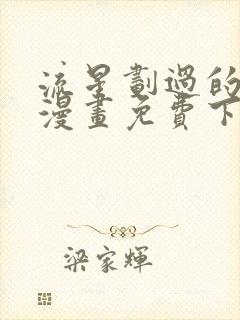 流星劃過的
漫畫免費下
梁家輝